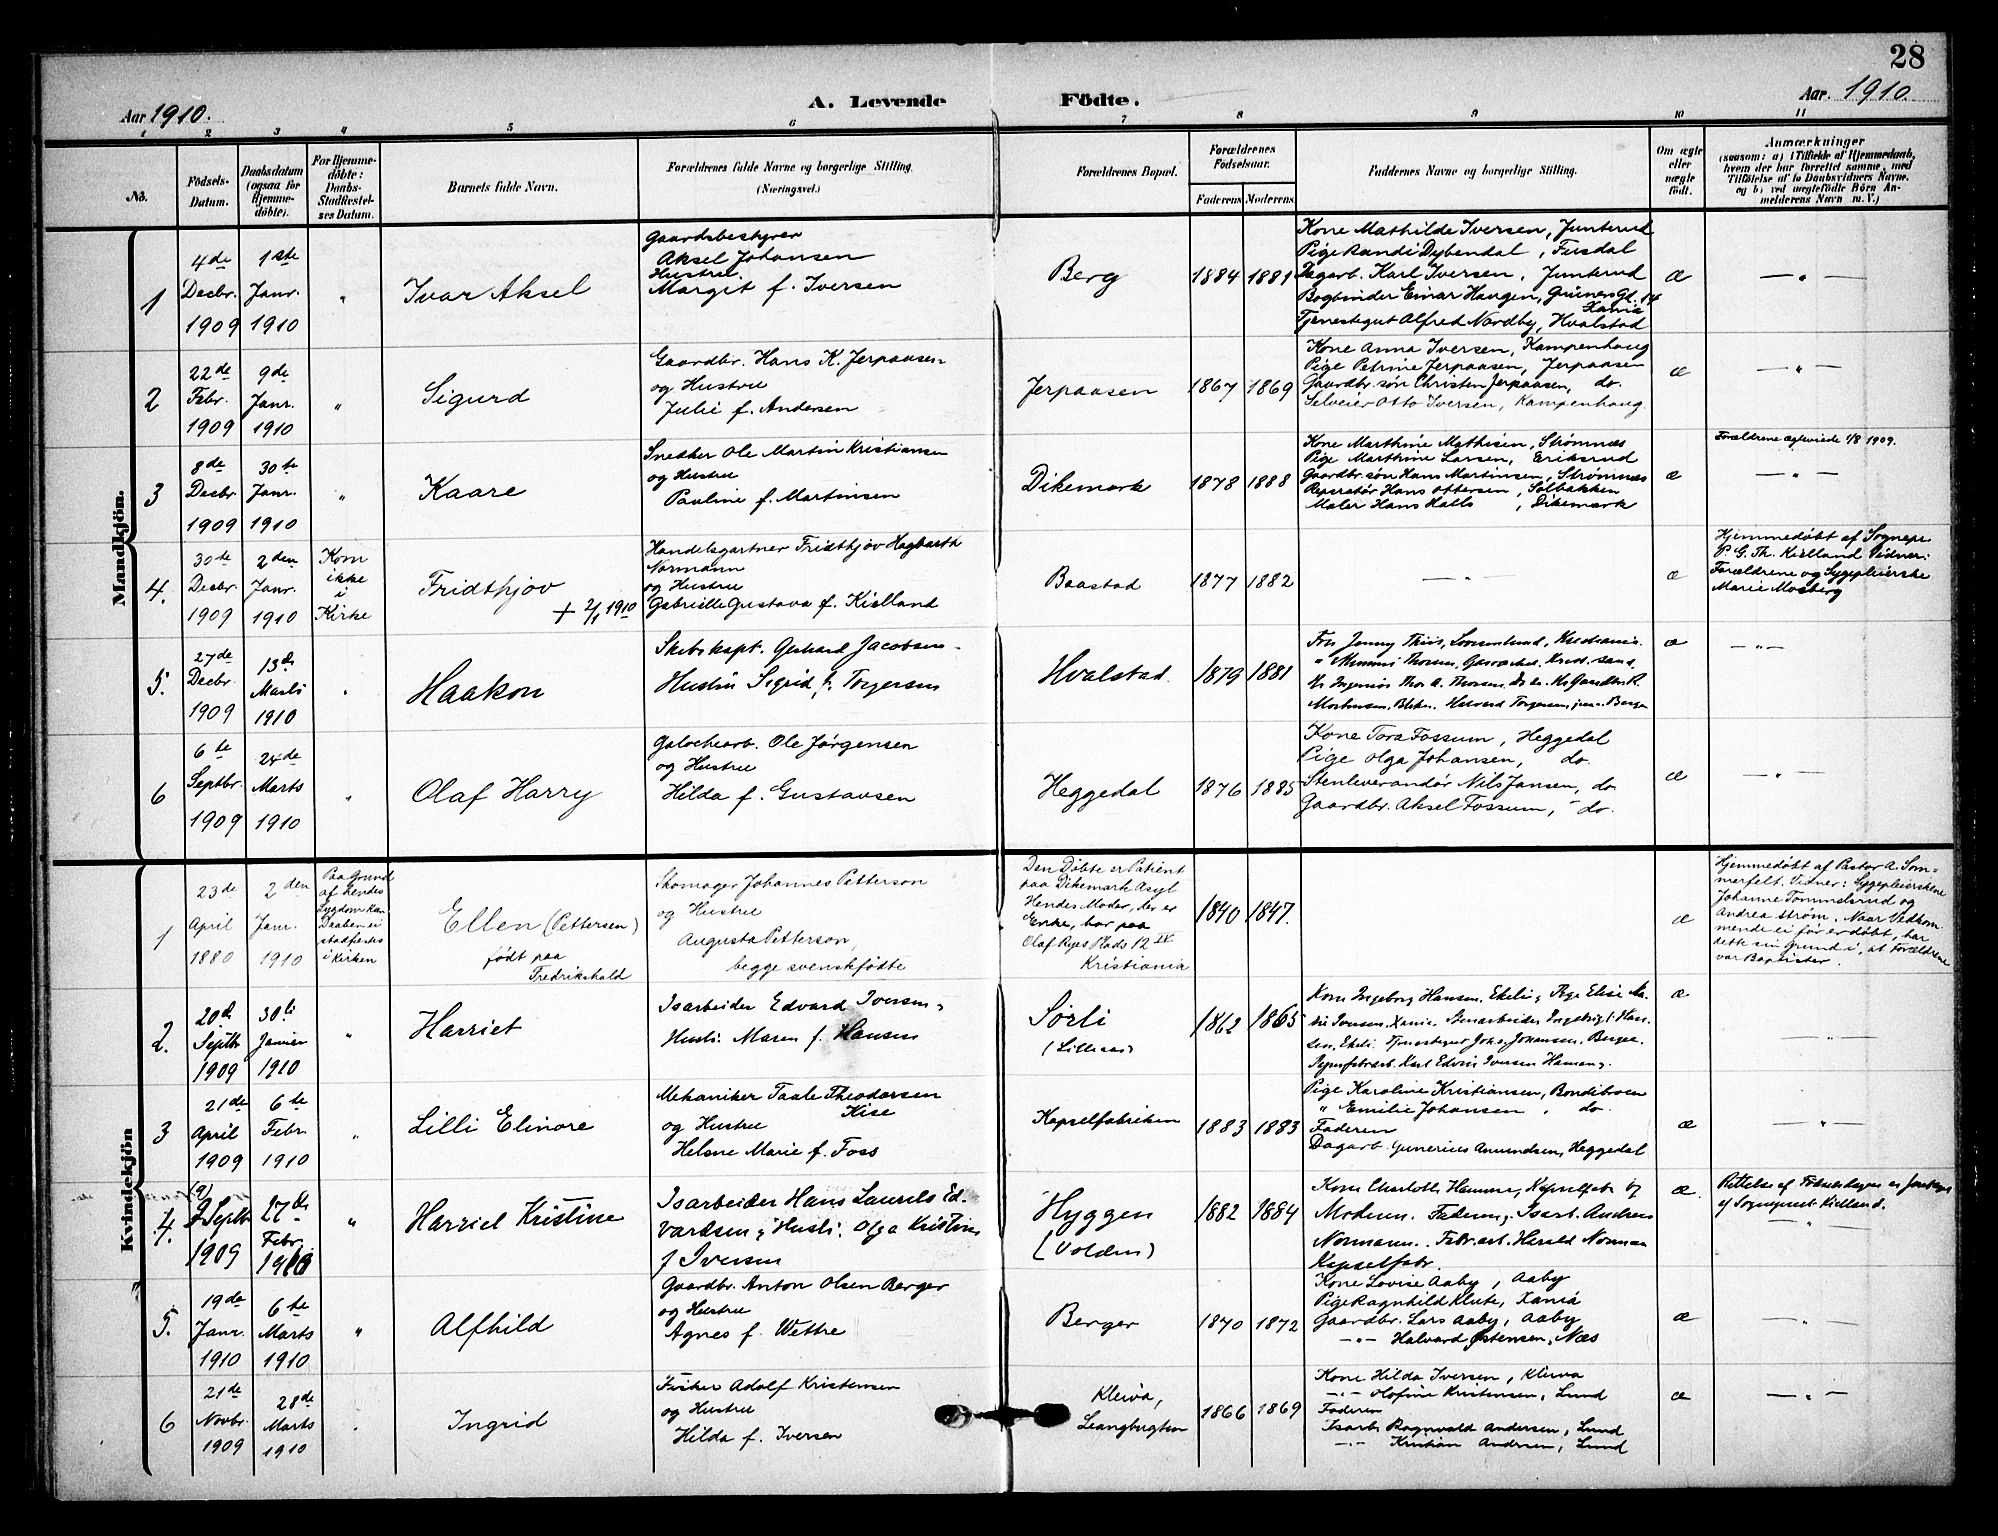 28
Aar 1910.
A. Levende Födte.
Aar. 1910.
1 2 3 4 5 6 7 8 9 10 11
No.
Födsels-
Datum.
Daabsdatum
(ogsaa for
Hjemme-
döbte).
For Hjemme-
döbte:
Daabs-
Stadfæstel-
ses Datum.
Barnets fulde Navn.
Forældrenes fulde Navne og borgerlige Stilling.
(Næringsvei.)
Forældrenes Bopæl.
Forældrenes
Födselsaar.
Faderens Moderens
Faddernes Navne og borgerlige Stilling.
Om ægte
eller
uægte
födt.
Anmærkninger
(saasom: a) i Tilfælde af Hjemmedaab,
hvem der har forrettet samme, med
Tilföielse af to Daabsvidners Navne.
og b) ved uægtefödte Börn An-
melderens Navn m. V.)
Mandkjön.
1
4de
Decbr.
1909
1ste
Janr.
1910
"
Ivar Aksel
Gaardsbestyrer
Aksel Johansen
Hustru
Margit f. Iversen
Berg
1884 1881
Kone Mathilde Iversen, Junterud
Pige Randi Dybendal, Fusdal
Dagarb. Karl Iversen, Junterud
Bogbinder Einar Haugen, Grüners Gt. 14
Xania
Tjenestegut Alfred Nordby, Hvalstad
æ
— " —
2
22de
Febr.
1909
9de
Janr.
1910
"
Sigurd
Gaardbr. Hans K. Jerpaasen
og Hustru
Julie f. Andersen
Jerpaasen
1867 1869
Kone Anna Iversen, Kampenhaug
Pige Petrine Jerpaasen, Jerpaasen
Gaardbr. søn Christen Jerpaasen, do.
Selveier Otto Iversen, Kampenhaug.
æ
— " —
3
8de
Decbr.
1909
30te
Janr.
1910
"
Kaare
Snedker Ole Martin Kristiansen
og Hustru
Pauline f. Martinsen
Dikemark
1878 1888
Kone Marthine Mathisen, Strømnæs
Pige Marthine Larsen, Eriksrud
Gaardbr. søn Hans Martinsen, Strømnæs
Reperatør Hans Ottersen, Solbakken
Maler Hans Halls, Dikemark
æ
Forældrene ægteviede 1/8 1909.
— " —
4.
30te
Decbr.
1909
2den
Janr.
1910
Kom
ikke
i
Kirke
Fridthjov
+ 2/1 1910
Handelsgartner Fridthjov Hagbarth
Normann
og Hustru
Gabrielle Gustava f. Kielland
Baastad
1877 1882
— " —
æ
Hjemmedøbt af Sognepr.
P. G. Th. Kielland Vidner:
Forældrene og Sygepleierske
Marie Mosberg
5.
27de
Decbr
1909
13de
Marts
1910
"
Haakon
Skibskapt. Gerhard Jacobsen.
Hustru Sigrid f. Torgersen
Hvalstad.
1879 1881
æ
— " —
6
6te
Septbr.
1909
24de
Marts
1910
"
Olaf Harry
Galochearb. Ole Jørgensen
og Hustru
Hilda f. Gustavsen
Heggedal
1876 1885
Kone Tora Fossum, Heggedal
Pige Olga Johansen, do.
Stenleverandør Nils Jansen, do.
Gaardbr. Aksel Fossum, do.
æ
— " —
Kvindekjön
1
23de
April
1880
2den
Janr.
1910
Paa Grund
af hendes
Sygdom kan
Daaben ei
stadfestes
i Kirken
Ellen (Pettersen)
født paa
Fredrikshald
Skomager Johannes Petterson
og Hustru
Augusta Petterson,
begge svenskfødte
Den Døbte er Patient
paa Dikemark Asyl
Hendes Moder, der er
Enke, bor paa
Olaf Ryes Plads 12 IV
Kristiania
1840 1847.
æ
Hjemmedøbt af Pastor A. Som-
merfelt. Vidner: Sygepleierskene
Johanne Tommelsrud og
Andrea Strøm. Naar Vedkom-
mende ei før er døbt, har
dette sin Grund i, at Forældrene
var Baptister.
2.
20de
Septbr
1909
30te
Januar
1910
"
Harriet
Isarbeider Edvard Iversen,
Hustru Maren f. Hansen
Sørli
1862 1865
Kone Ingeborg Hansen, Ekeli,
æ
3
21de
April
1909
6te
Febr.
1910
"
Lilli Elinore
Mekaniker Taale Theodorsen
Kise
og Hustru
Helene Marie f. Foss
Kapselfabriken
1883 1883
Pige Karoline Kristiansen, Bondibroen
" Emilie Johansen, do.
Faderen
Dagarb. Gunerius Amundsen, Heggedal
æ
— " —
4.
Septbr
1909
27de
Febr.
1910
"
Harriet Kristine
Isarbeider Hans Laurits Ed-
vardsen, Hustru: Olga Kristine
f Iversen
Hyggen
(Volden)
1882 1884
Moderen. Faderen, Isarb. Andreas
Normann. Febr. arb. Harald Norman
Kapselfabr.
æ.
5.
19de
Janr.
1910
6te
Marts
1910
"
Alfhild
Gaardbr. Anton Olsen Berger
og Hustru
Agnes f. Wettre
Berger
1870 1872
Kone Lovise Aaby, Aaby
Pige Ragnhild Klute, Xania
Gaardbr. Lars Aaby, Aaby
—"— Halvard Østensen, Næs
æ
— " —
6
21de
Novbr.
1909
28de
Marts
1910
"
Ingrid
Fisker Adolf Kristensen
og Hustru
Hilda f. Iversen
Kleiva,
Leangbugten
1866 1869
Kone Hilda Iversen, Kleiva
—"— Olofine Kristensen, Lund
Faderen
Isarb. Ragnvald Andersen, Lund
—"— Kristian Andersen, Lund
æ
— " —